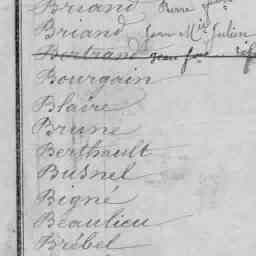 Briand Pierre
Briand Jean Mie Julien
Bertrand Jean fois
Bourgain
Blaire
Brune
Berthault
Busnel
Bigné
Beaulieu
Brébel